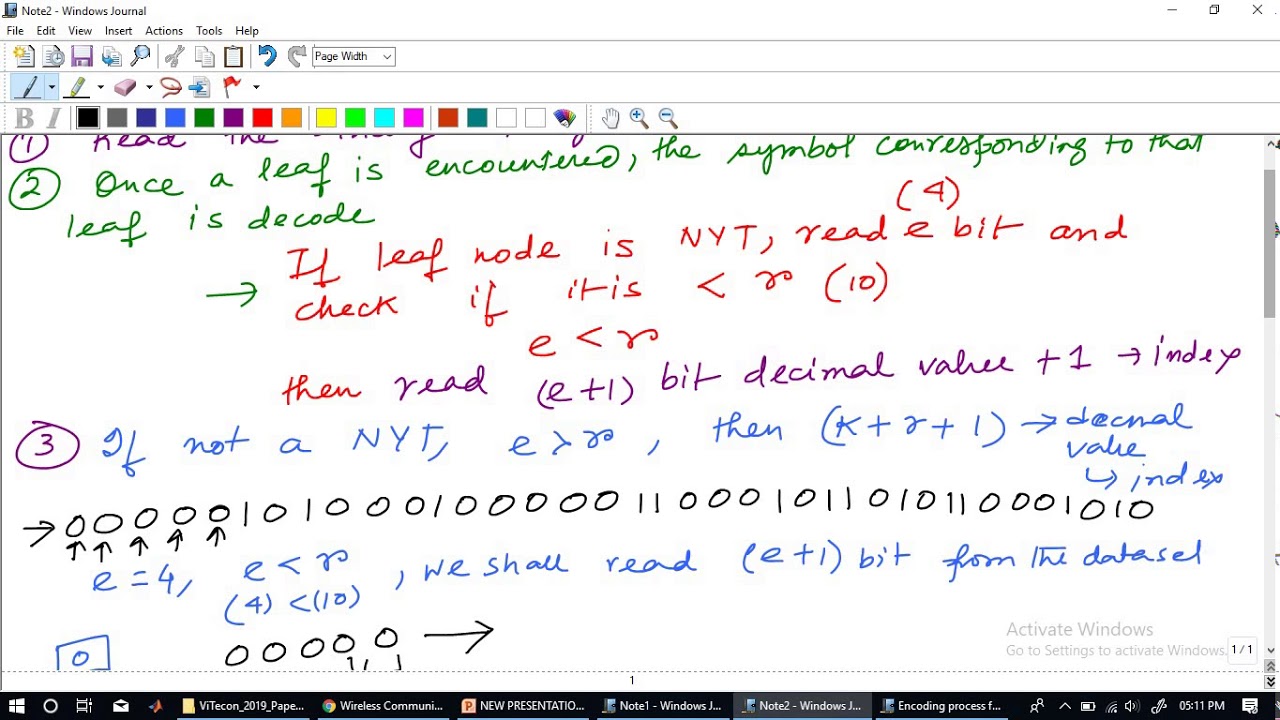 Note2 - Windows Journal
File Edit View Insert Actions Tools Help
Page Width
B I
① Read the
② Once a leaf is encountered, the symbol corresponding to that
leaf is decode
(4)
If leaf node is NYT, read e bit and
→ check if it is < r (10)
e < r
then read (e+1) bit decimal value +1 → index
③ If not a NYT, e > r, then (k+r+1) → decmal
value
↳ index
→ 00000101000100000110001011010110001010
↑ ↑ ↑ ↑ ↑
e = 4, e < r, we shall read (e+1) bit from the dataset
(4) < (10)
0 00000 →
Activate Windows
Go to Settings to activate Windows.
1 / 1
1
ViTecon_2019_Pape...
Wireless Communi...
NEW PRESENTATIO...
Note1 - Windows J...
Note2 - Windows J...
Encoding process f...
05:11 PM